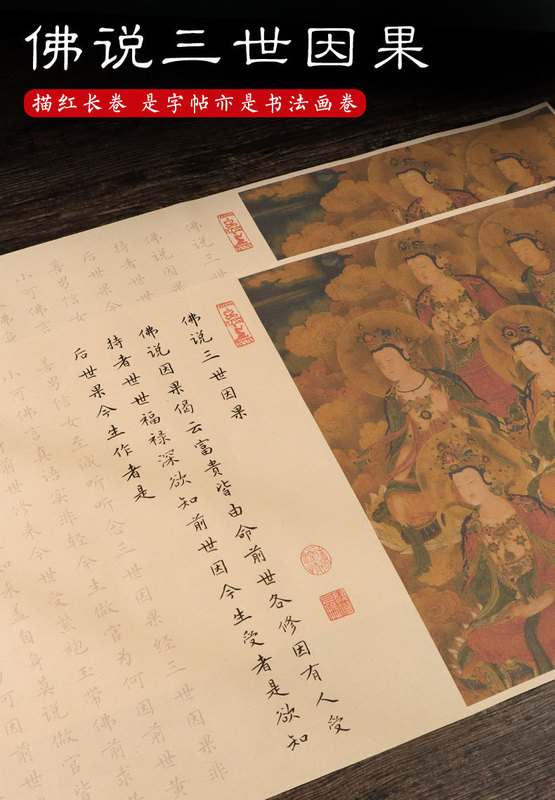 佛说三世因果
描红长卷 是字帖亦是书法画卷
佛说三世因果
佛说因果偈云富贵皆由命前世各修因有人受
持者世世福禄深欲知前世因今生受者是欲知
后世果今生作者是
善男信女至诚听听念三世因果经三世因果非
小可佛言真语实非轻今生做官为何因前世黄
来今世受紫袍玉带佛前求
如来盖自身莫说做官皆
可因前世
佛说三世
佛说因果
持者世世
后世果今
善男信女
小可佛言